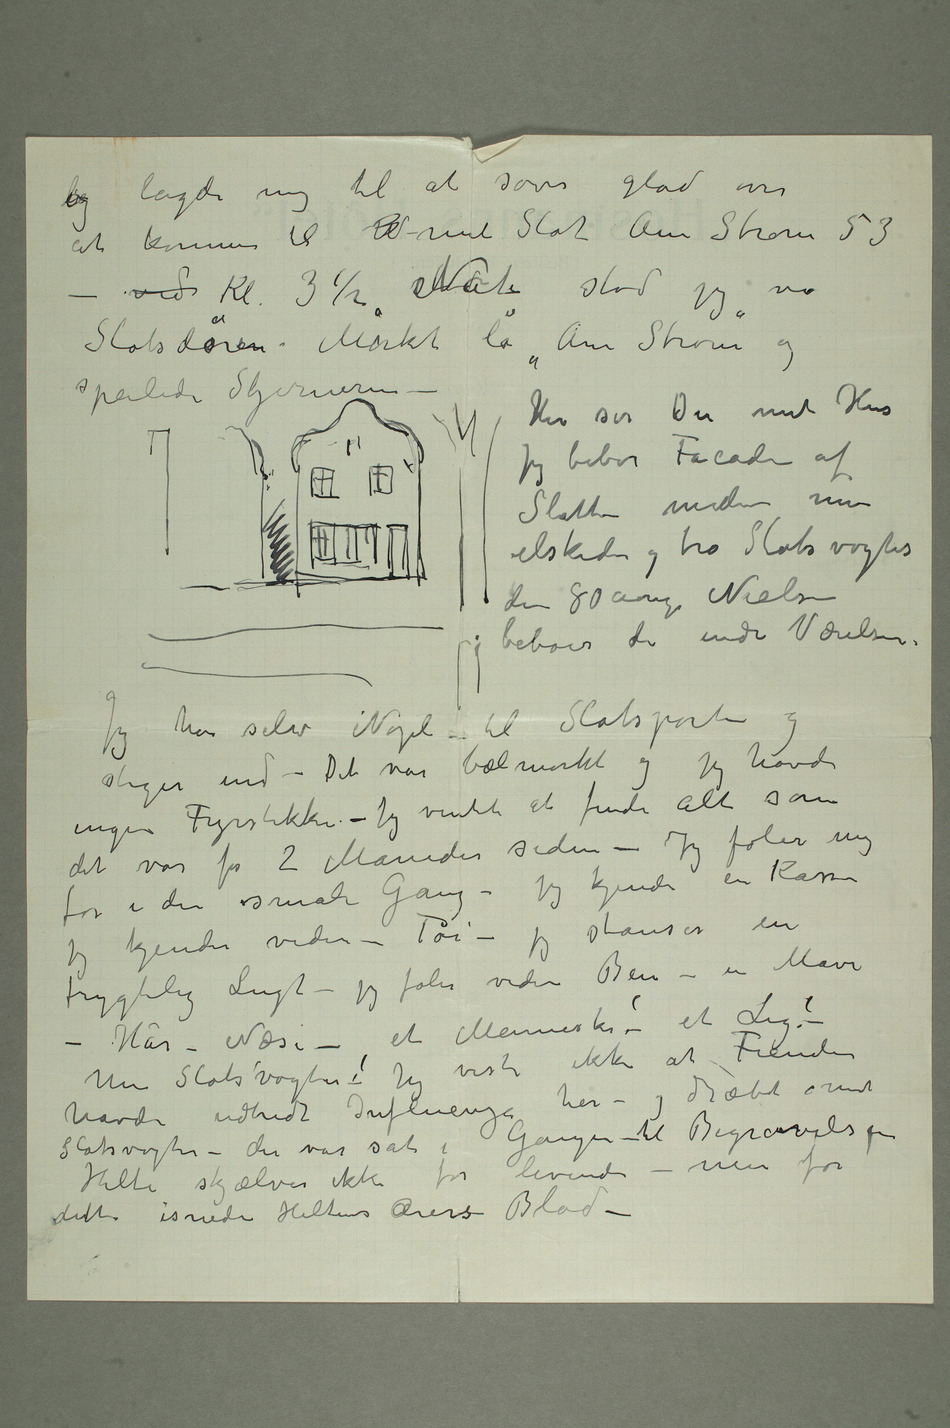 og lagde mig til at sove glad over
at komme til mit Slot Am Strom 53
– ved Kl. 3 1/2 Nat stod jeg ved
Slotsdøren. Mørkt lå „Am Strom" og
speilede Stjernerne –
Her ser Du mit Hus
Jeg bebor Facaden af
Slottet medens min
elskede og tro Slotsvogter
den 80 aarige Nielsen
beboer de indre Værelser.
Jeg har selv Nøgel til Slotsporten og
stiger ind – Det var bælmørkt og jeg havde
ingen Fyrstikker – Jeg ventet at finde alt som
det var for 2 Måneder siden – Jeg føler mig
for i den smale Gang – jeg kjender en Kasse
jeg kjender videre – Tøi – jeg stanser en
frygtelig Lugt – jeg føler videre Ben – en Mave
– Hår – Næse – et Menneske! – et Lig! –
Min Slotsvogter! – Jeg viste ikke at Fienden
havde udbredt Influenza her – og dræbt min
Slotsvogter – der var sat i Gangen til Begravelsen
Helte skjælver ikke for levende – men for
dette isnede Heltens Årers Blod –